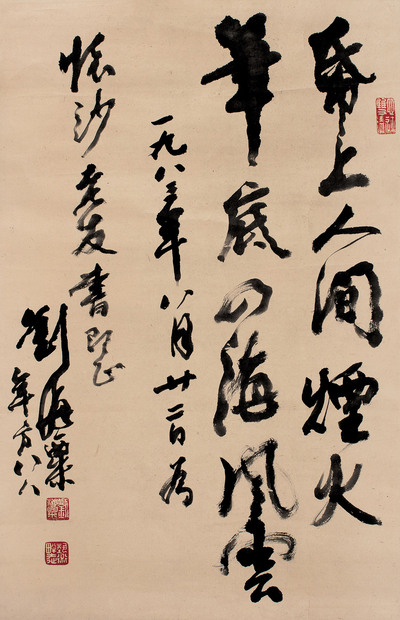 帋上人間煙火
筆底四海風雲
一九八三年八月廿二日為
懷沙老友書即正
劉海粟
年方八八